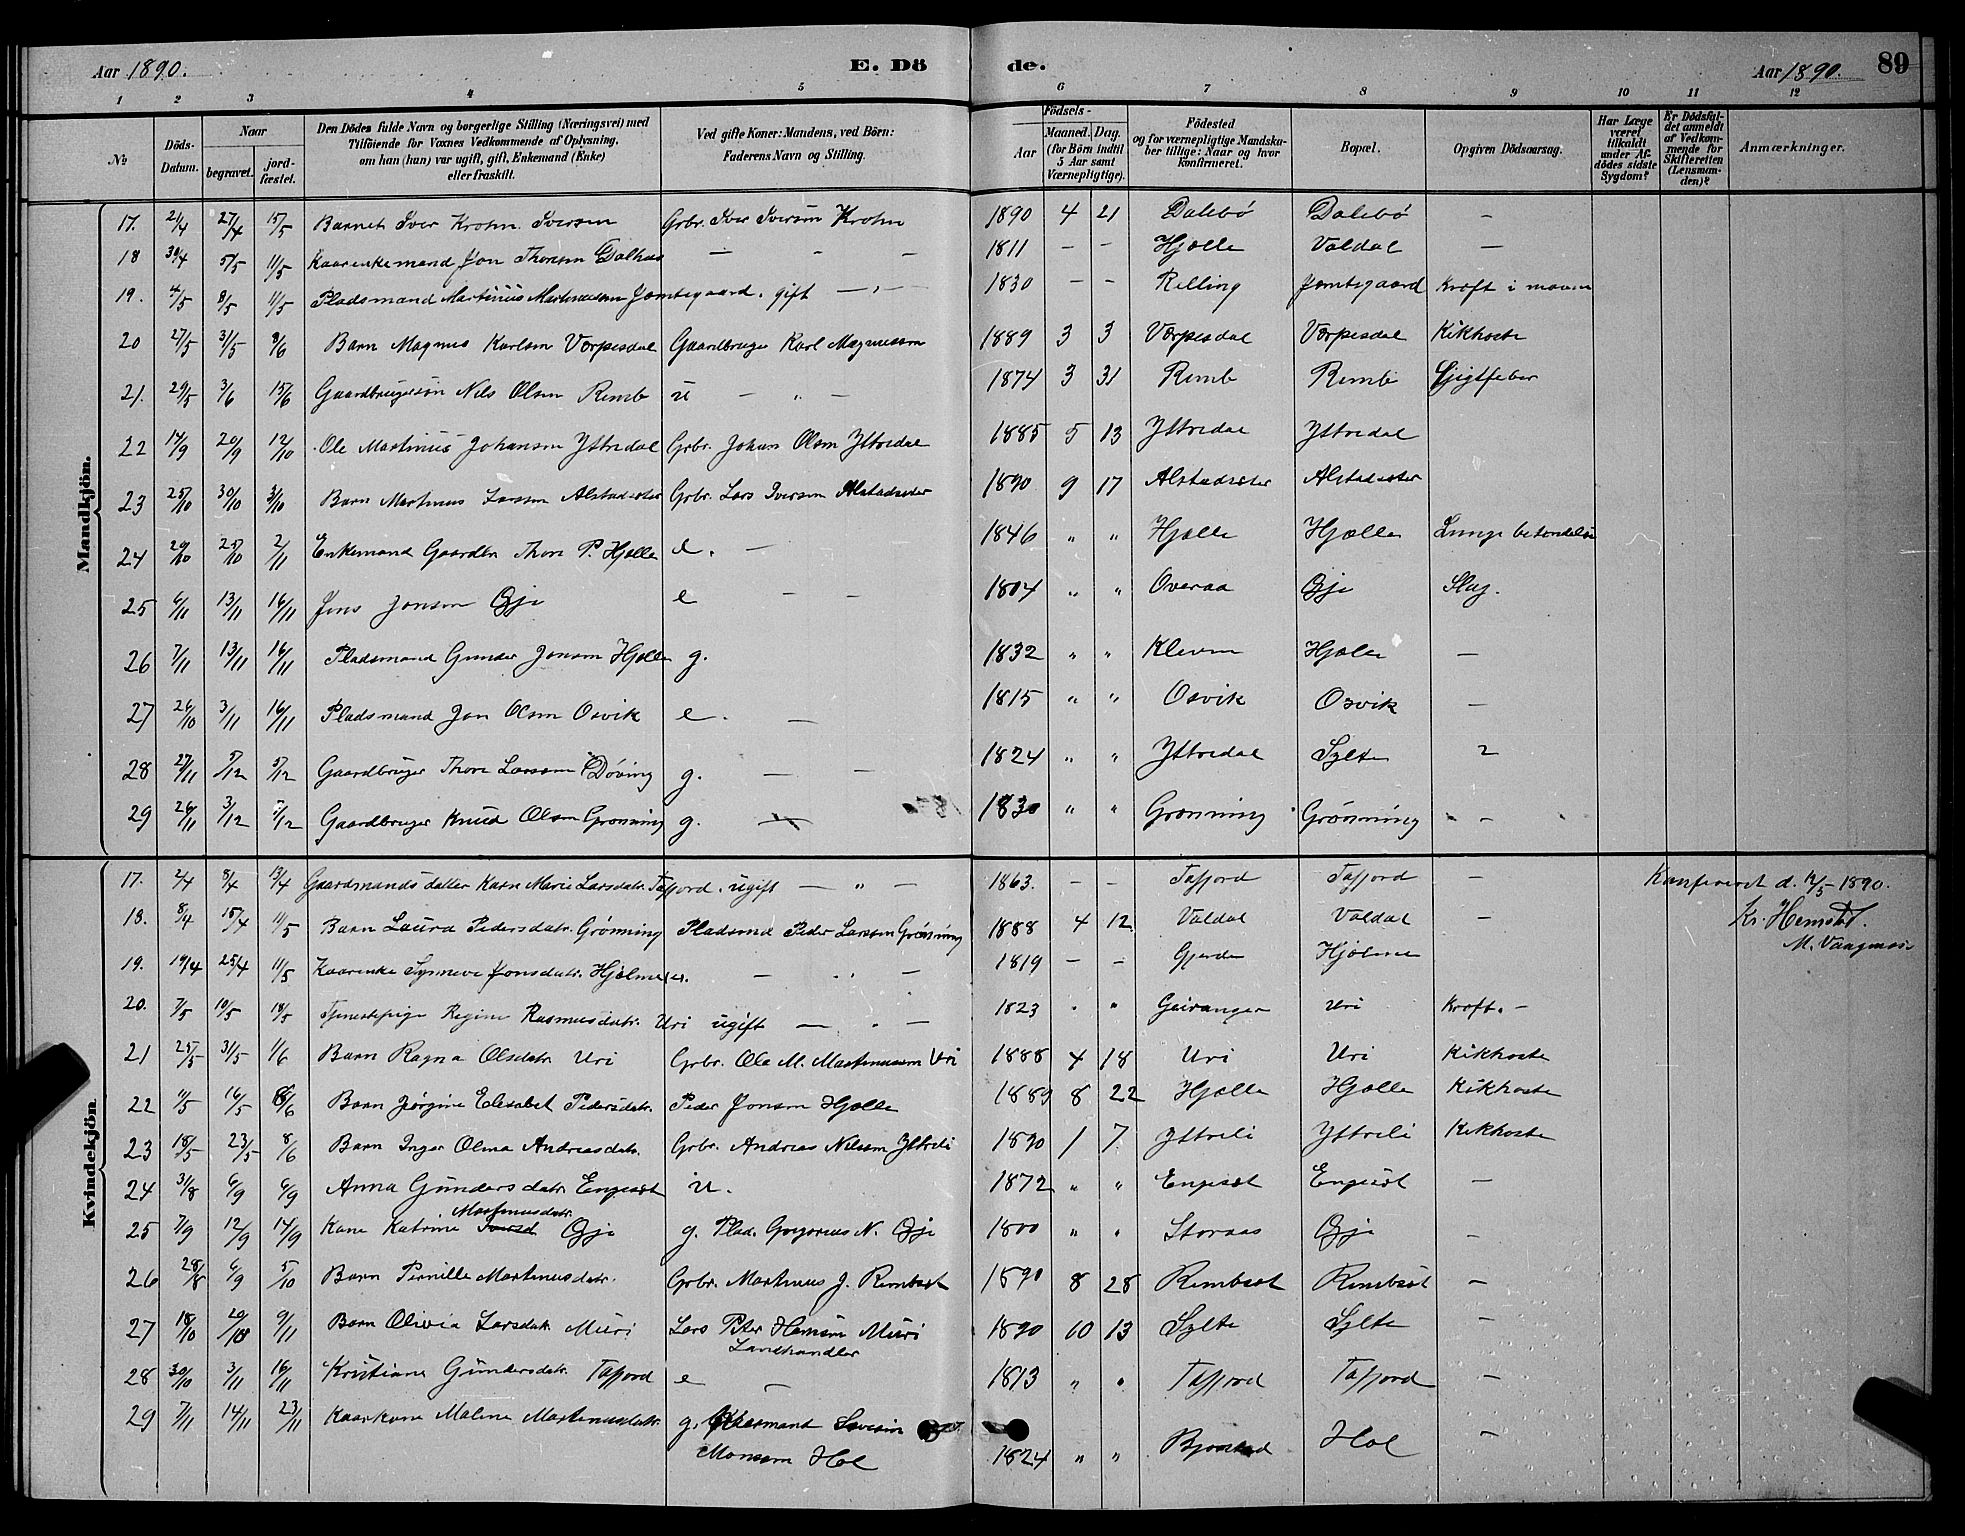 Aar 1890. E. Döde. Aar 1890. 89
1 2 3 4 5 6 7 8 9 10 11 12
№ Döds-Datum. Naar begravet. jordfæstet. Den Dödes fulde Navn og borgerlige Stilling (Næringsvei) med Tilföiende for Voxnes Vedkommende af Oplysning, om han (hun) var ugift, gift, Enkemand (Enke) eller fraskilt. Ved gifte Koner: Mandens, ved Börn: Faderens Navn og Stilling. Födsels- Aar Maaned. Dag. (for Börn indtil 5 Aar samt Værnepligtige). Födested og for værnepligtige Mandskaber tillige: Naar og hvor Konfirmeret. Bopæl. Opgiven Dödsaarsag. Har Læge været tilkaldt under Afdödes sidste Sygdom? Er Dödsfaldet anmeldt af Vedkommende for Skifteretten (Lensmanden)? Anmærkninger.
Mandkjön.
17. 21/4 27/4 15/5 Barnet Iver Krohn Iversen Grbr. Iver Iversen Krohn 1890 4 21 Dalebö Dalebö –
18 30/4 5/5 11/5 Kaarenkemand Jon Thoresen Dalhus – – – 1811 – – Hjelle Valdal –
19. 4/5 8/5 11/5 Pladsmand Martinus Martinussen Jamtegaard. gift – " – 1830 – – Relling Jamtegaard Kræft i maven
20 27/5 31/5 8/6 Barn Magnus Karlsen Verpesdal Gaardbruger Karl Magnussen 1889 3 3 Verpesdal Verpesdal Kikhoste
21. 29/5 3/6 15/6 Gaardbrugersön Nils Olsen Remb u – " – 1874 3 31 Remb Remb Gigtfeber
22 14/9 20/9 12/10 Ole Martinus Johansen Yttredal Grbr. Johan Olsen Yttredal 1885 5 13 Yttredal Yttredal
23 25/10 30/10 3/10 Barn Martinus Larsen Alstadsæter Grbr. Lars Iversen Alstadsæter 1890 9 17 Alstadsæter Alstadsæter
24 20/10 25/10 2/11 Enkemand Gaardbr. Thore P. Hjelle e. – 1846 " " Hjelle Hjelle Lungebetændelse
25 6/11 13/11 16/11 Jens Jonsen Gje e – – 1804 " " Overaa Gje Slag.
26 7/11 13/11 16/11 Pladsmand Gunder Jonsen Hjelle g. 1832 " " Kleven Hjelle –
27 26/10 3/11 16/11 Pladsmand Jon Olsen Osvik e. – 1815 " " Osvik Osvik –
28 27/11 5/12 5/12 Gaardbruger Thore Larsen Döving g. – – 1824 " " Yttredal Sylte
29 26/11 3/12 5/12 Gaardbruger Knud Olsen Grönning g. – 1830 " " Grönning Grönning –
Kvindekjön
17. 2/4 8/4 13/4 Gaardmandsdatter Karn Marie Larsdatr. Tafjord. ugift – " – 1863. – – Tafjord Tafjord – Konfereret d. 12/5 1890.
18. 8/4 15/4 11/5 Barn Laura Pedersdatr. Grönning Pladsmd Peder Larsen Grönning 1888 4 12 Valdal Valdal – Kr. Hemstad.
19. 19/4 25/4 11/5 Kaarenke Synneve Jonsdatr. Hjelme – – 1819 – – Gjerde Hjelme
20. 7/5 10/5 18/5 Tjenestepige Regine Rasmusdatr. Uri ugift – " – 1823 " " Geiranger Uri Kræft. –
21 25/5 31/5 1/6 Barn Ragna Olsdatr. Uri Grbr. Ole M. Martinussen Uri 1888 4 18 Uri Uri Kikhoste
22 11/5 16/5 8/6 Barn Jørgine Elisabet Pedersdatr. Peder Jonsen Hjelle 1889 8 22 Hjelle Hjelle Kikhoste
23 18/5 23/5 8/6 Barn Inger Olma Andreasdatr. Grbr. Andreas Nilsen Yttreli 1890 1 7 Yttreli Yttreli Kikhoste
24 31/8 6/9 6/9 Anna Gundersdatr. Engeset u. 1872 " " Engeset Engeset –
25 7/9 12/9 14/9 Kone Katrine Martinusdatr. Gje g. Plad. Gregorius N. Gje 1800 " " Storaas Gje –
26 28/8 6/9 5/10 Barn Pernille Martinusdatr. Grbr. Martinus J. Rembset 1890 8 28 Rembset Rembset –
27 18/10 20/10 9/11 Barn Olivia Larsdatr. Muri Lars Peter Hansen Muri 1890 10 13 Sylte Sylte –
Landhandler
28 30/10 3/11 16/11 Kristiane Gundersdatr. Tafjord e – 1813 " " Tafjord Tafjord –
29 7/11 14/11 23/11 Kaarkone Malene Martinusdatr. g. Kaarmand Severin
Monsen Hol 1824 " " Bjorstad Hol –